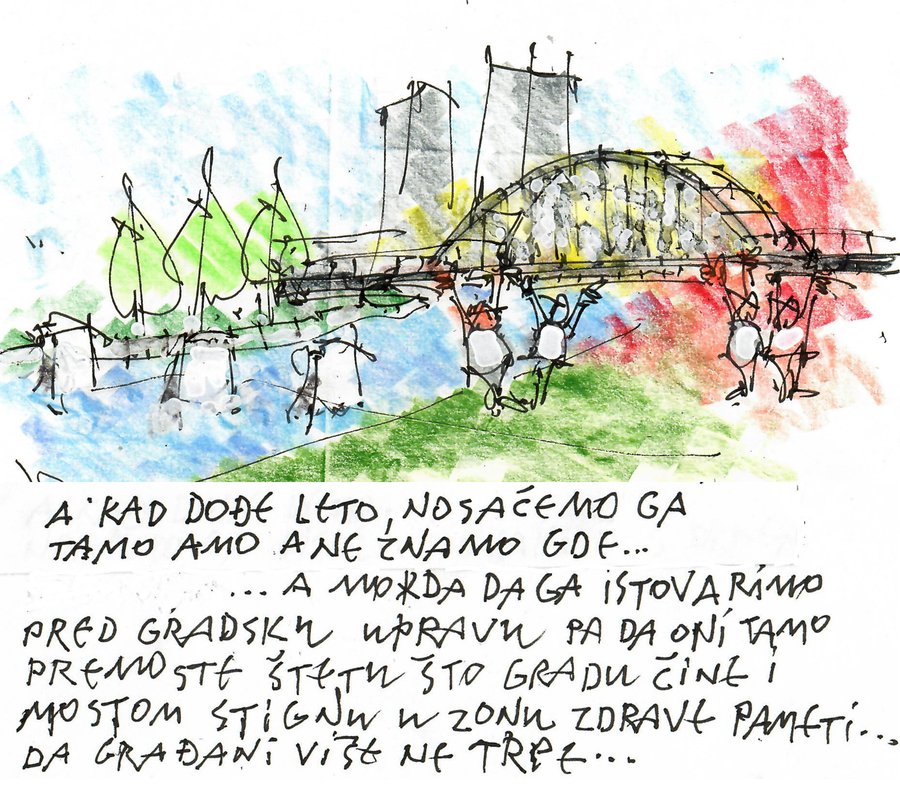 A KAD DOĐE LETO, NOSAĆEMO GA
TAMO AMO A NE ZNAMO GDE...
...A MOŽDA DA GA ISTOVARIMO
PRED GRADSKU UPRAVU PA DA ONI TAMO
PREMOSTE ŠTETU ŠTO GRADU ČINE I
MOSTOM STIGNU U ZONU ZDRAVE PAMETI...
DA GRAĐANI VIŠE NE TRPE...